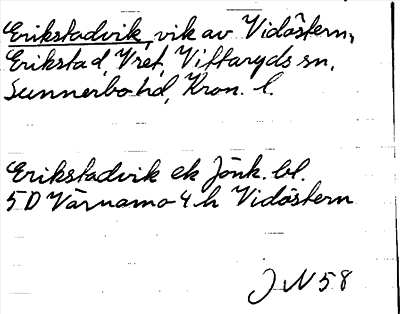 Erikstadvik, vik av Vidöstern,
Erikstad, Vret, Vittaryds sn,
Sunnerbo hd, Kron. l.
Erikstadvik ek Jönk. bl.
5 D Värnamo 4 h Vidöstern
J N 58